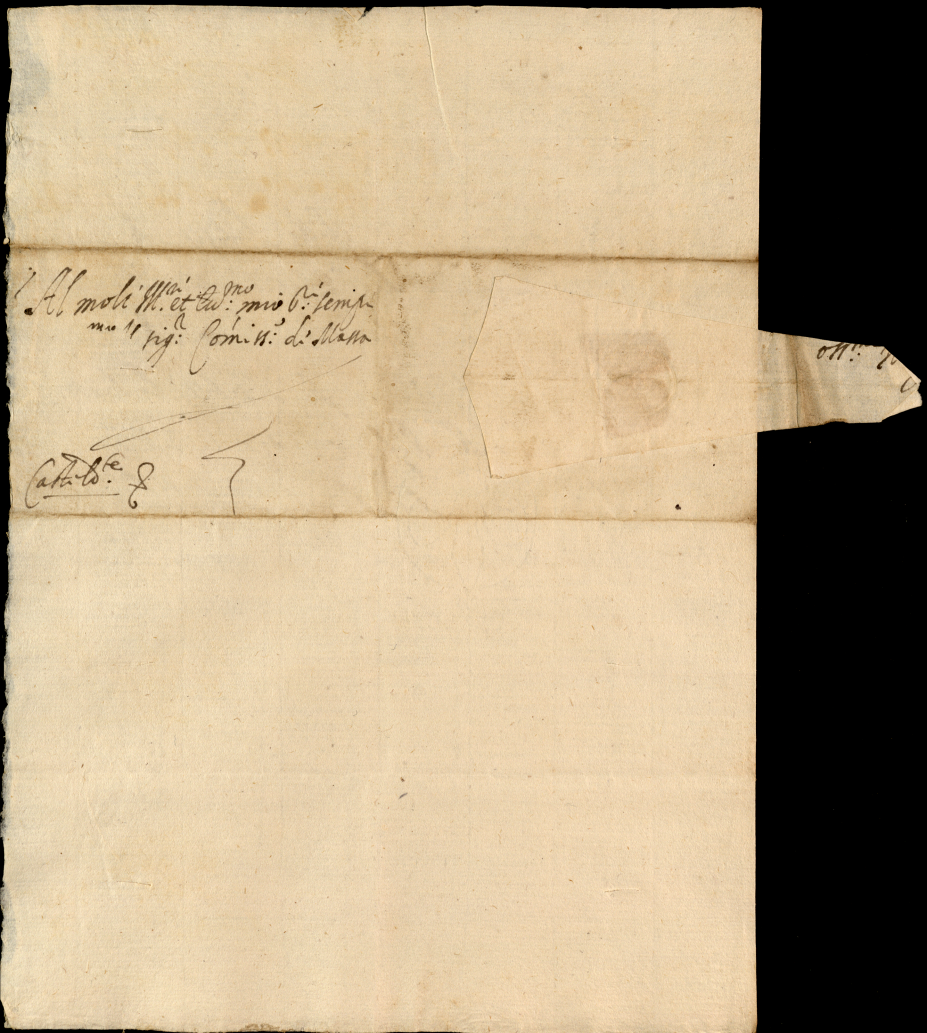 Al molt Ill.ri et Ecc.mo mio S.r semp.
mo il sig.r Comiss.o di Massa
Castild.te
oss.mo